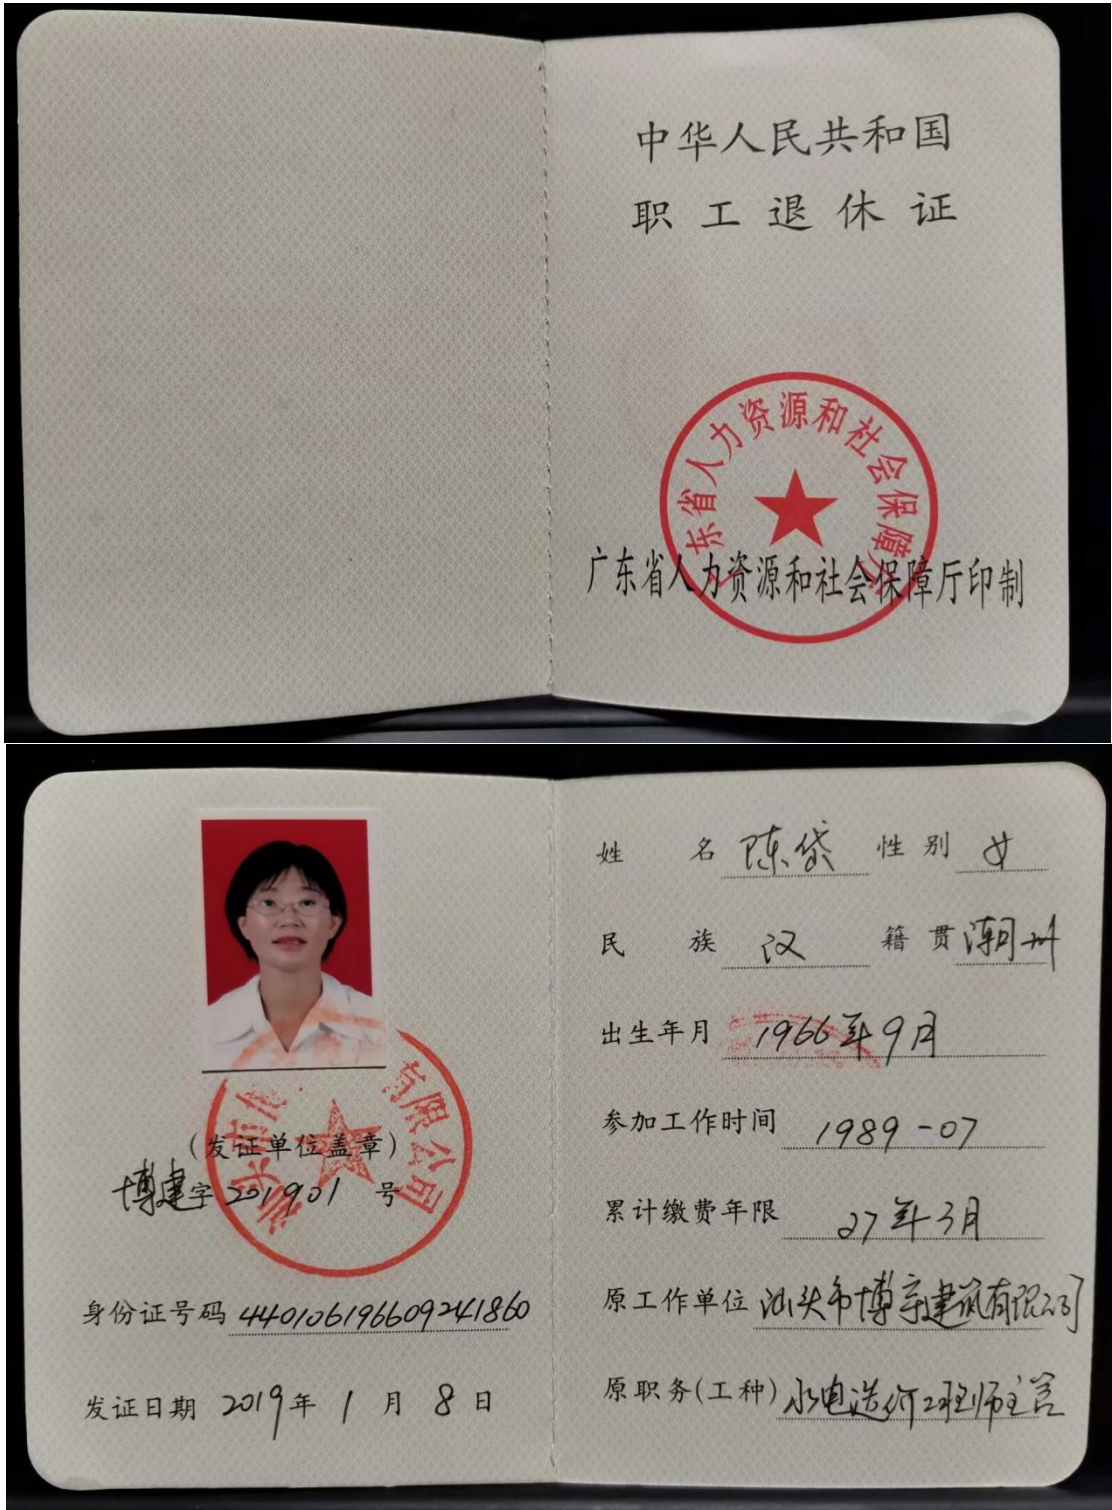 中华人民共和国
职工退休证
广东省人力资源和社会保障厅
广东省人力资源和社会保障厅印制
有限公司
(发证单位盖章)
博建字201901号
身份证号码 440106196609241860
发证日期 2019年1月8日
姓名 陈岱 性别 女
民族 汉 籍贯 潮州
出生年月 1966年9月
参加工作时间 1989-07
累计缴费年限 27年3月
原工作单位 汕头市博宇建筑有限公司
原职务(工种) 水电造价工程师主管